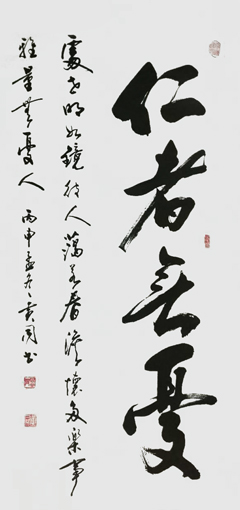 仁者無憂
處世明如鏡待人藹若春澹懷多樂事
雅量無憂人 丙申孟冬 书